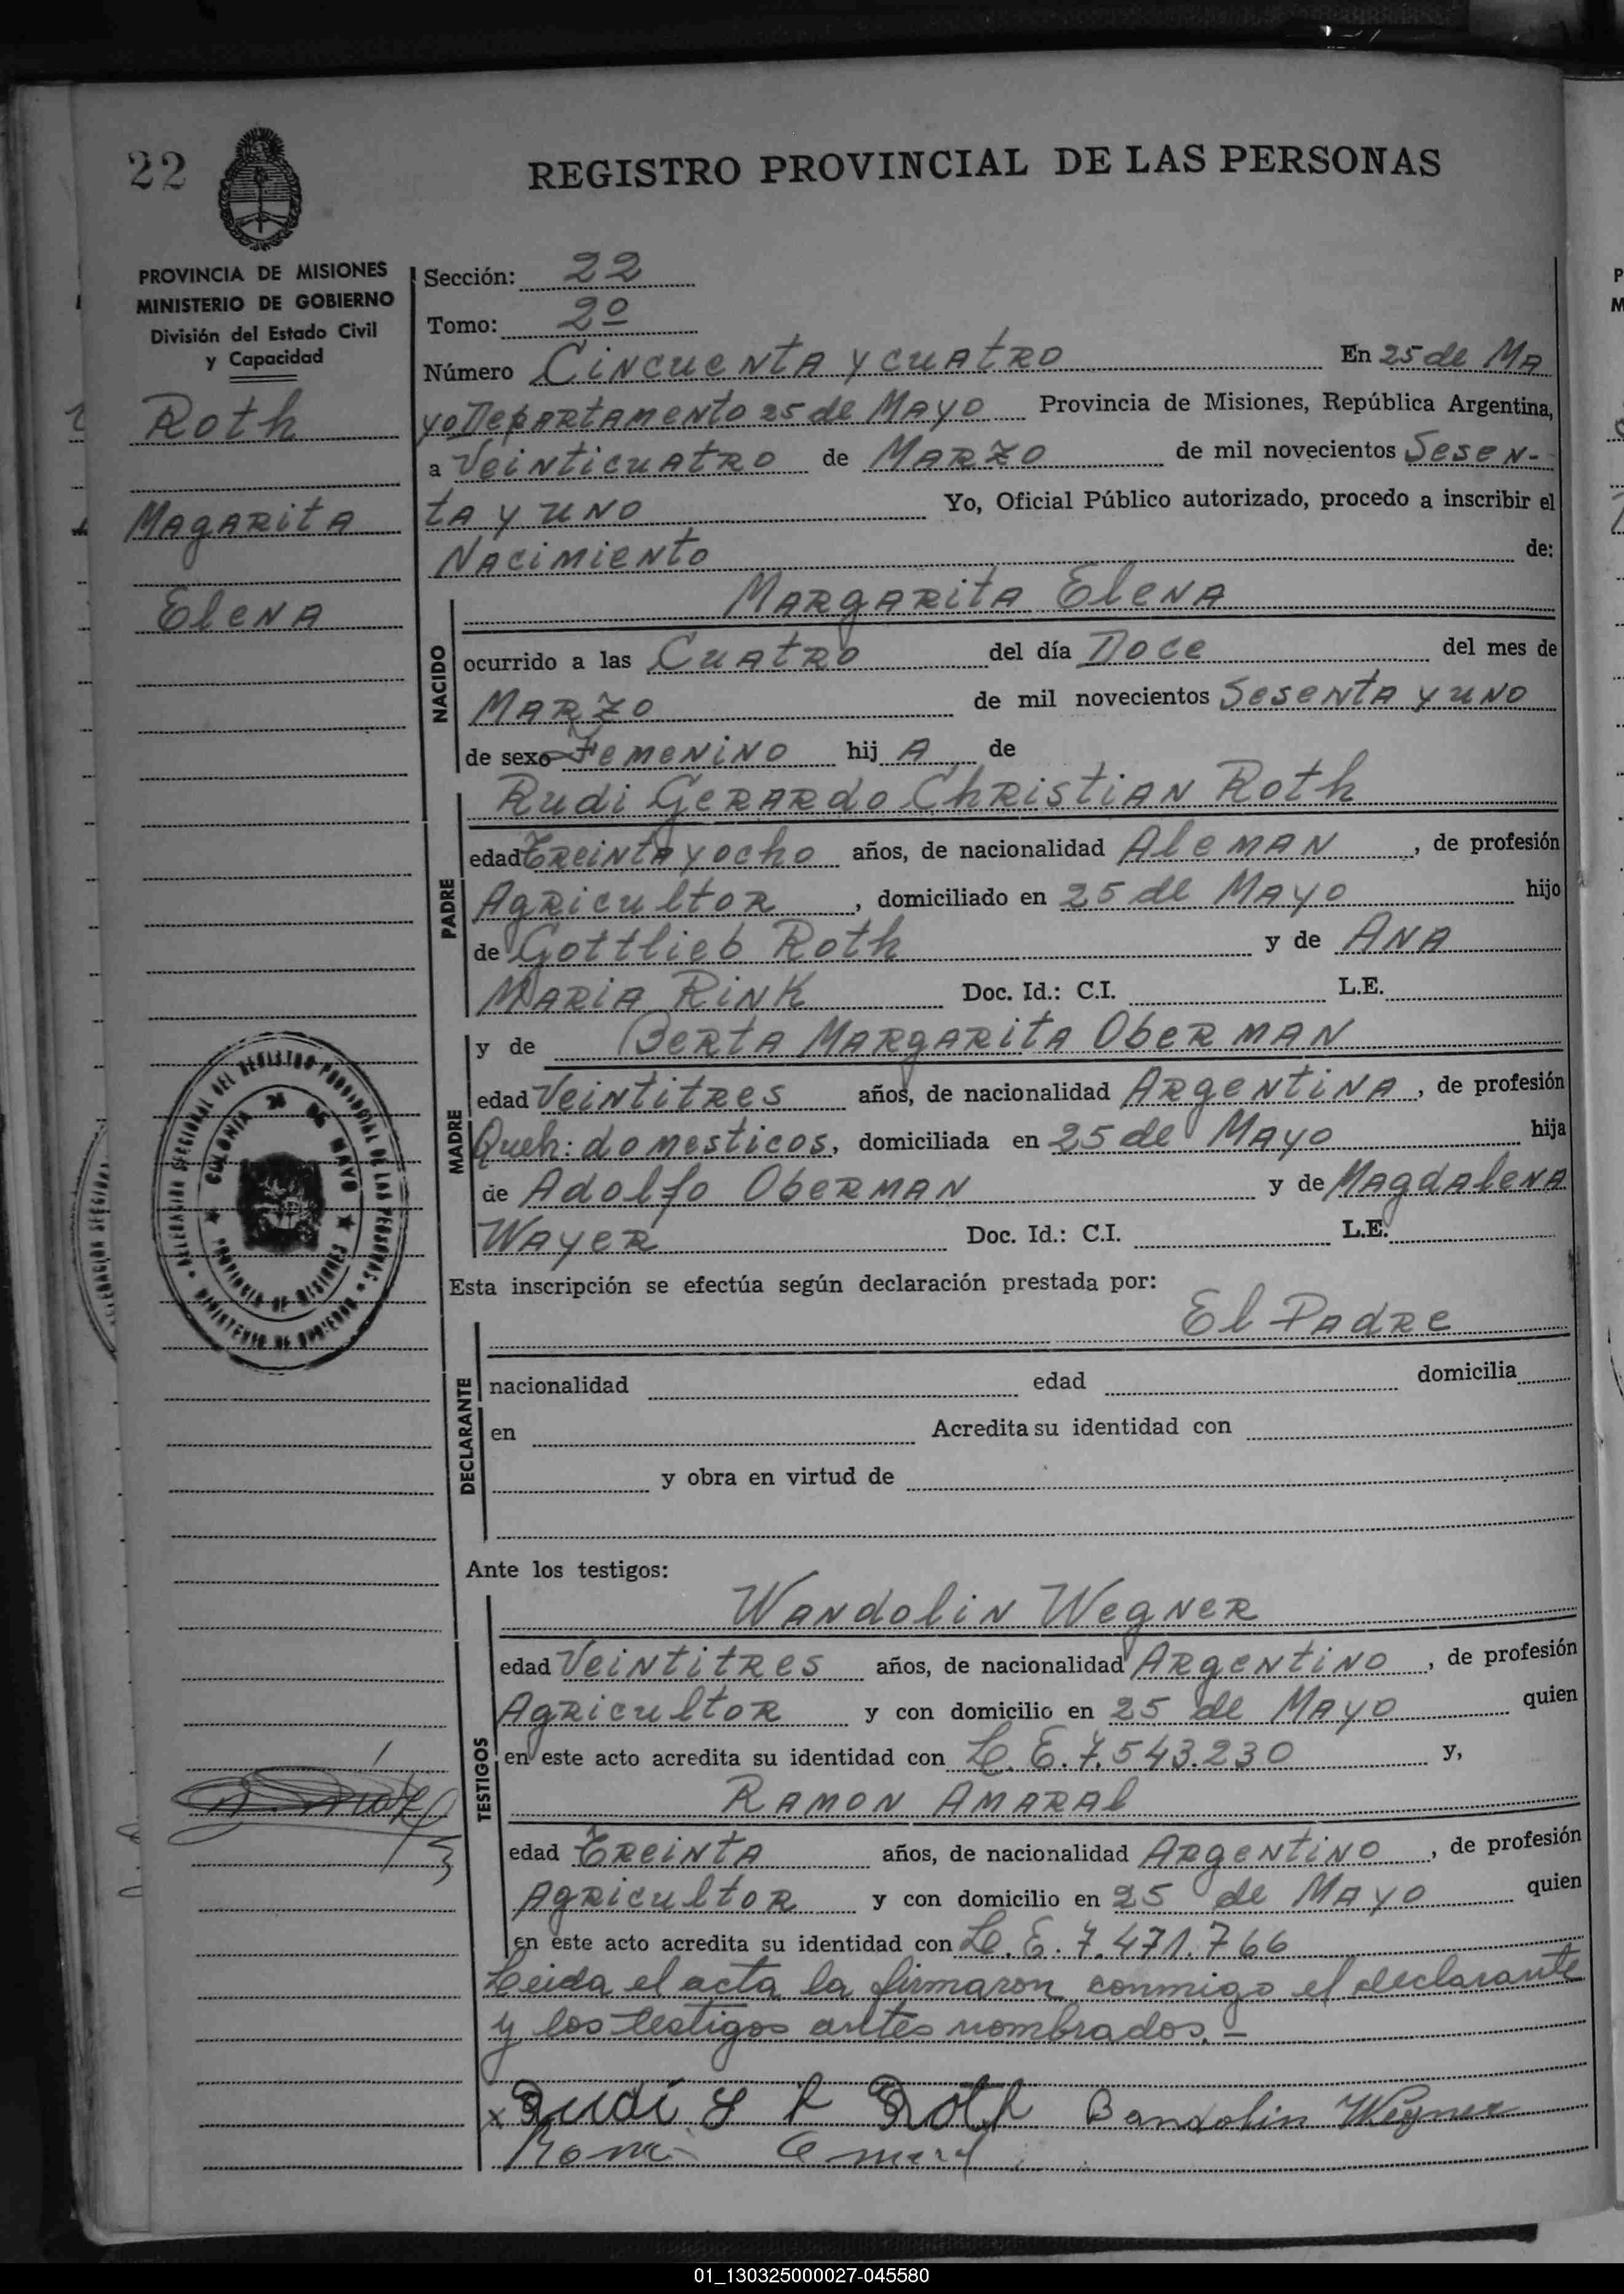 22
REGISTRO PROVINCIAL DE LAS PERSONAS
PROVINCIA DE MISIONES
MINISTERIO DE GOBIERNO
División del Estado Civil
y Capacidad
Roth
Magarita
Elena
Sección: 22
Tomo: 2º
Número Cincuenta y cuatro En 25 de Ma
yo Departamento 25 de Mayo Provincia de Misiones, República Argentina,
a Veinticuatro de Marzo de mil novecientos Sesen-
ta y uno Yo, Oficial Público autorizado, procedo a inscribir el
Nacimiento de:
NACIDO
Margarita Elena
ocurrido a las Cuatro del día Doce del mes de
Marzo de mil novecientos Sesenta y uno
de sexo Femenino hij A de
PADRE
Rudi Gerardo Christian Roth
edad Treinta y ocho años, de nacionalidad Aleman, de profesión
Agricultor, domiciliado en 25 de Mayo hijo
de Gottlieb Roth y de Ana
Maria Rink Doc. Id.: C.I. L.E.
MADRE
y de Berta Margarita Oberman
edad Veintitres años, de nacionalidad Argentina, de profesión
Queh: domesticos, domiciliada en 25 de Mayo hija
de Adolfo Oberman y de Magdalena
Wayer Doc. Id.: C.I. L.E.
DELEGACIÓN SECCIONAL DEL REGISTRO PROVINCIAL DE LAS PERSONAS
MINISTERIO DE GOBIERNO
COLONIA 25 DE MAYO
PROVINCIA DE MISIONES
Esta inscripción se efectúa según declaración prestada por:
DECLARANTE
El Padre
nacionalidad edad domicilia
en Acredita su identidad con
y obra en virtud de
Ante los testigos:
TESTIGOS
Wandolin Wegner
edad Veintitres años, de nacionalidad Argentino, de profesión
Agricultor y con domicilio en 25 de Mayo quien
en este acto acredita su identidad con L.E. 7.543.230 y,
Ramon Amaral
edad Treinta años, de nacionalidad Argentino, de profesión
Agricultor y con domicilio en 25 de Mayo quien
en este acto acredita su identidad con L.E. 7.471.766
Leida el acta la firmaron conmigo el declarante
y los testigos antes nombrados.-
x Rudi Roth Bandolin Wegner
01_130325000027-045580